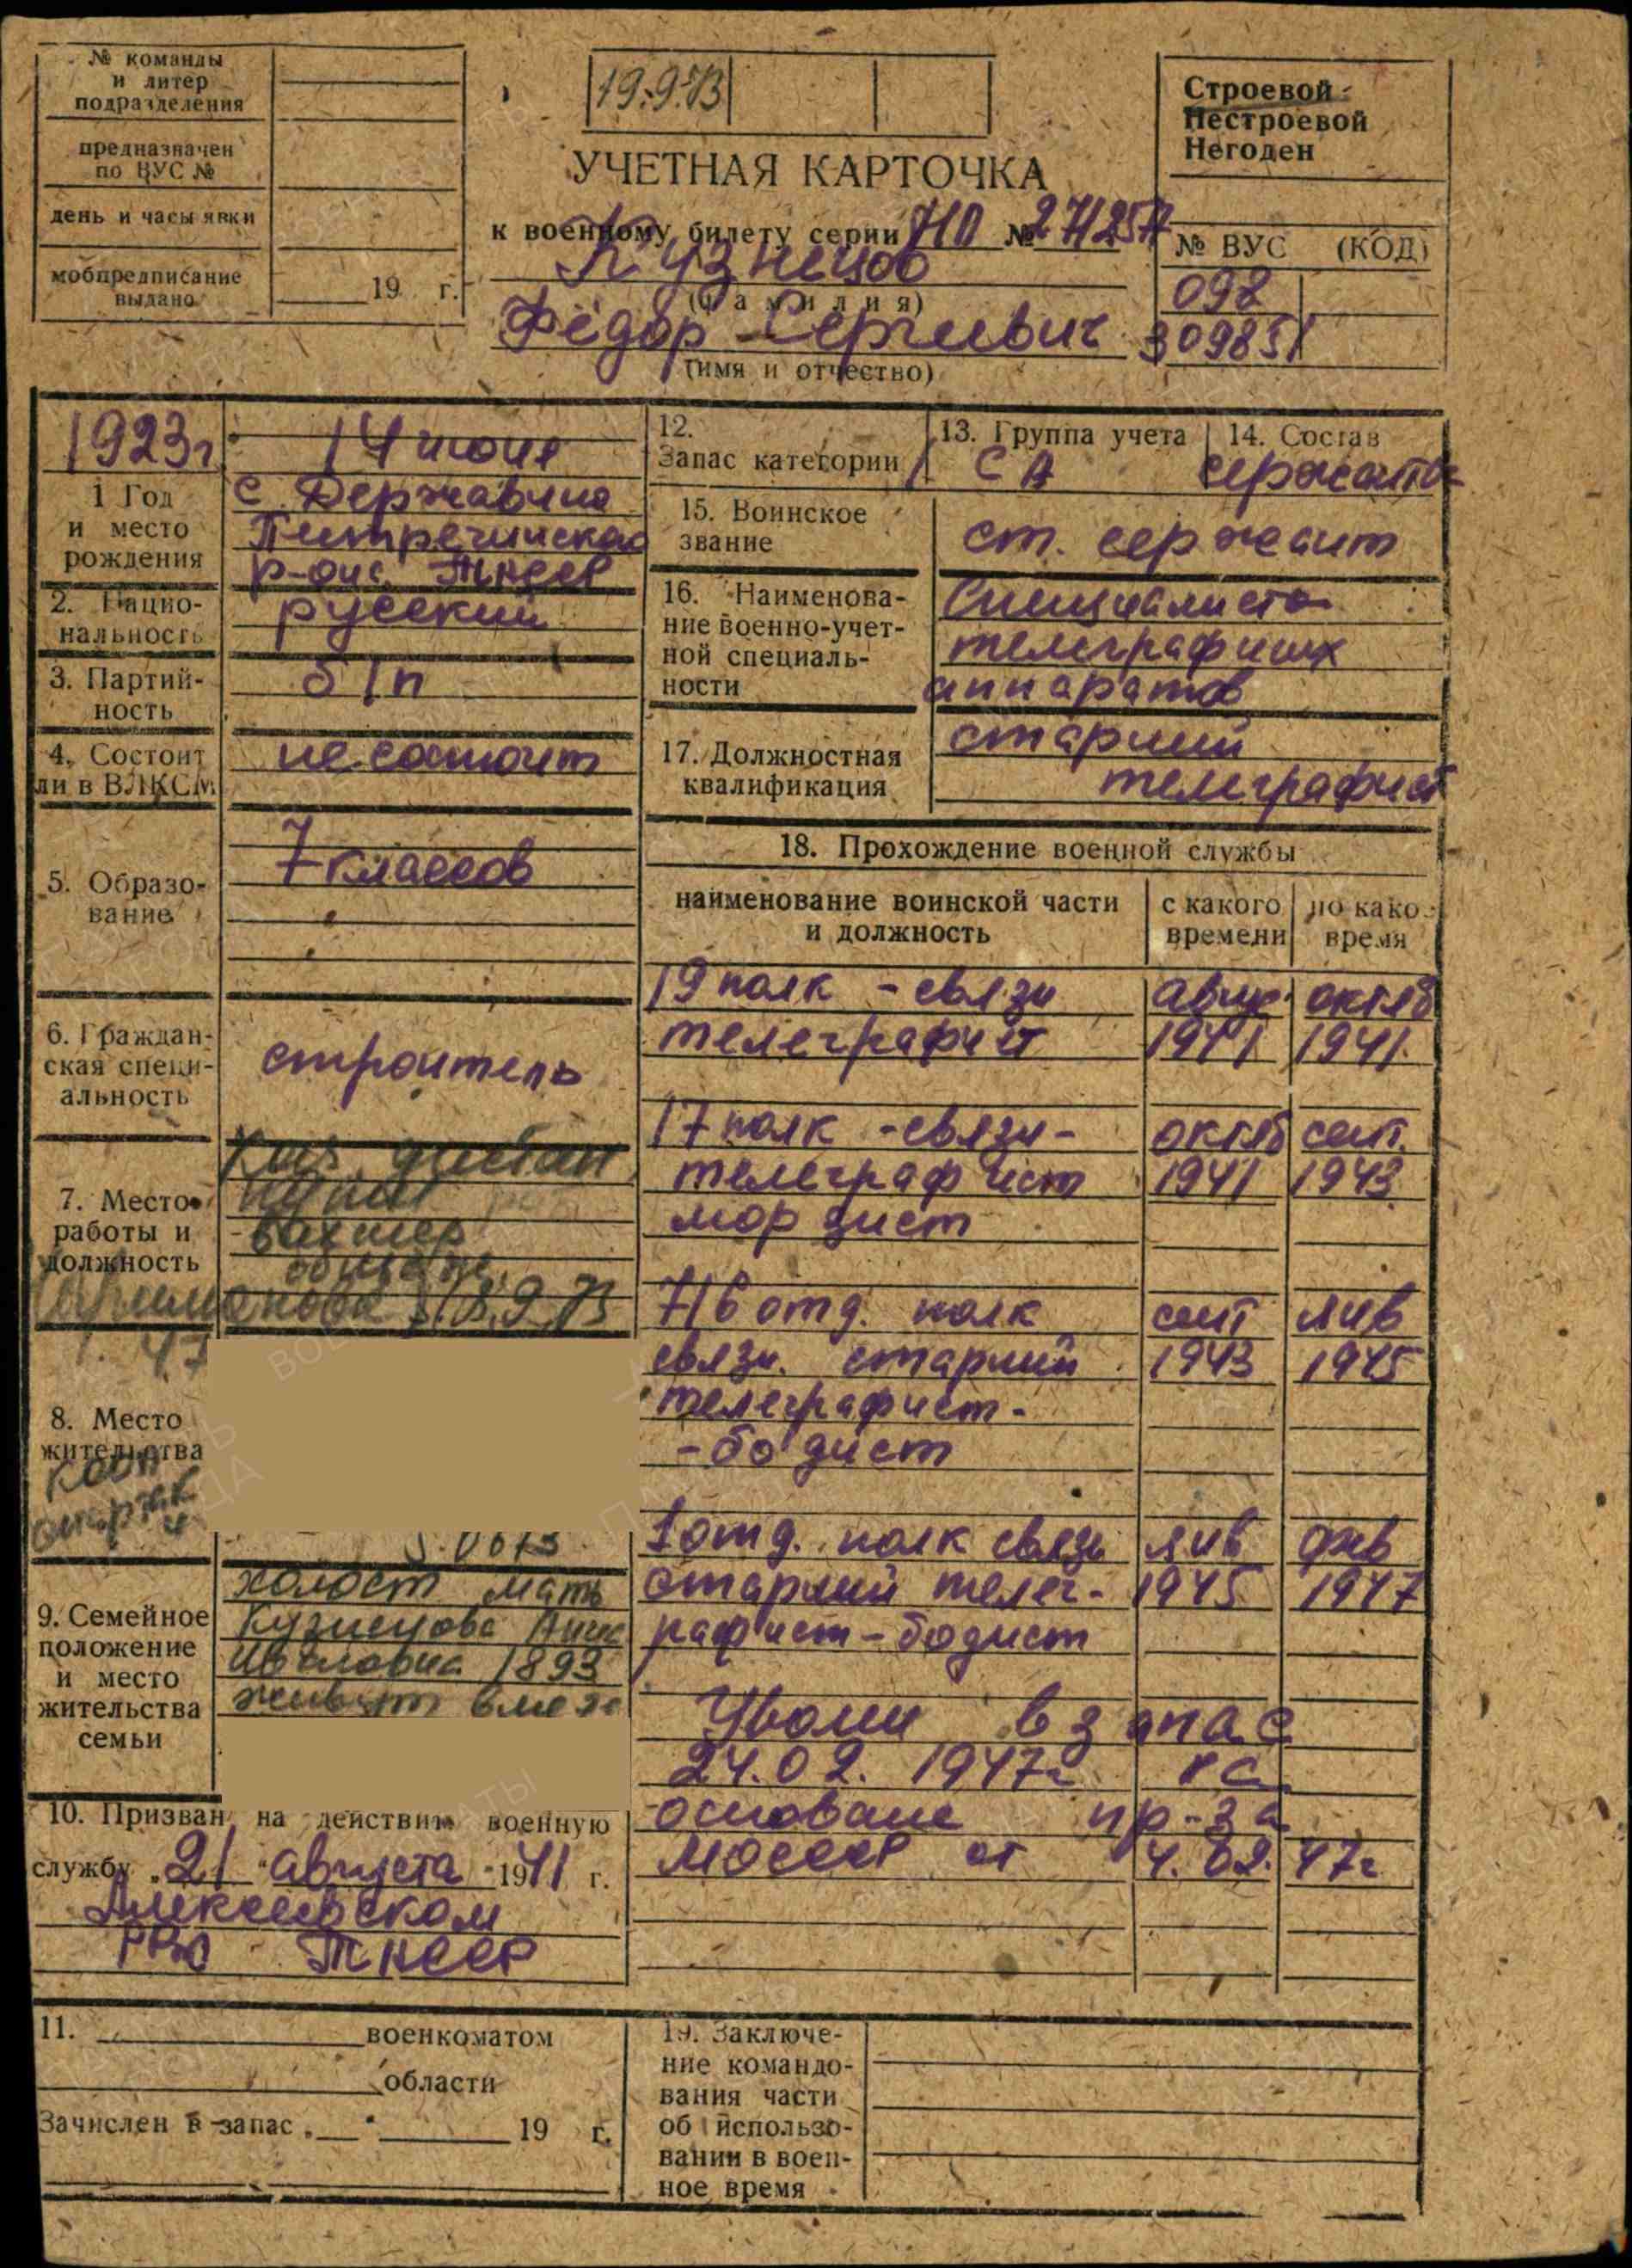 № команды
и литер
подразделения
предназначен
по ВУС №
день и часы явки
мобпредписание
выдано 19 г.
19.9.73
УЧЕТНАЯ КАРТОЧКА
к военному билету серии НО №
Кузнецов
(фамилия)
Фёдор Сергеевич
(имя и отчество)
Строевой
Нестроевой
Негоден
№ ВУС (КОД)
092
309851
1923г
14 июня
1 Год
и место
рождения
с. Державино
р-она
2. Нацио-
нальность
русский
3. Партий-
ность
б/п
4. Состоит
ли в ВЛКСМ
не состоит
5. Образо-
вание
7 классов
6. Граждан-
ская специ-
альность
строитель
7. Место
работы и
должность
вахтер
8. Место
жительства
9. Семейное
положение
и место
жительства
семьи
холост мать
Кузнецова Анна
1893
живут
10. Призван на действит. военную
службу „21" августа 1941 г.
Алексеевском
РВК
11. военкоматом
области
Зачислен в запас „ " 19 г.
12.
Запас категории 1
13. Группа учета
СА
14. Состав
сержанты
15. Воинское
звание
ст. сержант
16. Наименова-
ние военно-учет-
ной специаль-
ности
телеграфных
аппаратов
17. Должностная
квалификация
старший
телеграфист
18. Прохождение военной службы
наименование воинской части
и должность
с какого
времени
по како-
время
19 полк - связи авг. октяб
телеграфист 1941 1941
17 полк - связи - октяб сент.
телеграфист 1941 1943
морзист
716 отд. полк сент янв
связи. старший 1943 1945
телеграфист -
- бодист
1 отд. полк связи янв фев
старший телег- 1945 1947
рафист - бодист
Уволен в запас
24.02. 1947г на
основание пр-за
от 4.02.47г
19. Заключе-
ние командо-
вания части
об использо-
вании в воен-
ное время